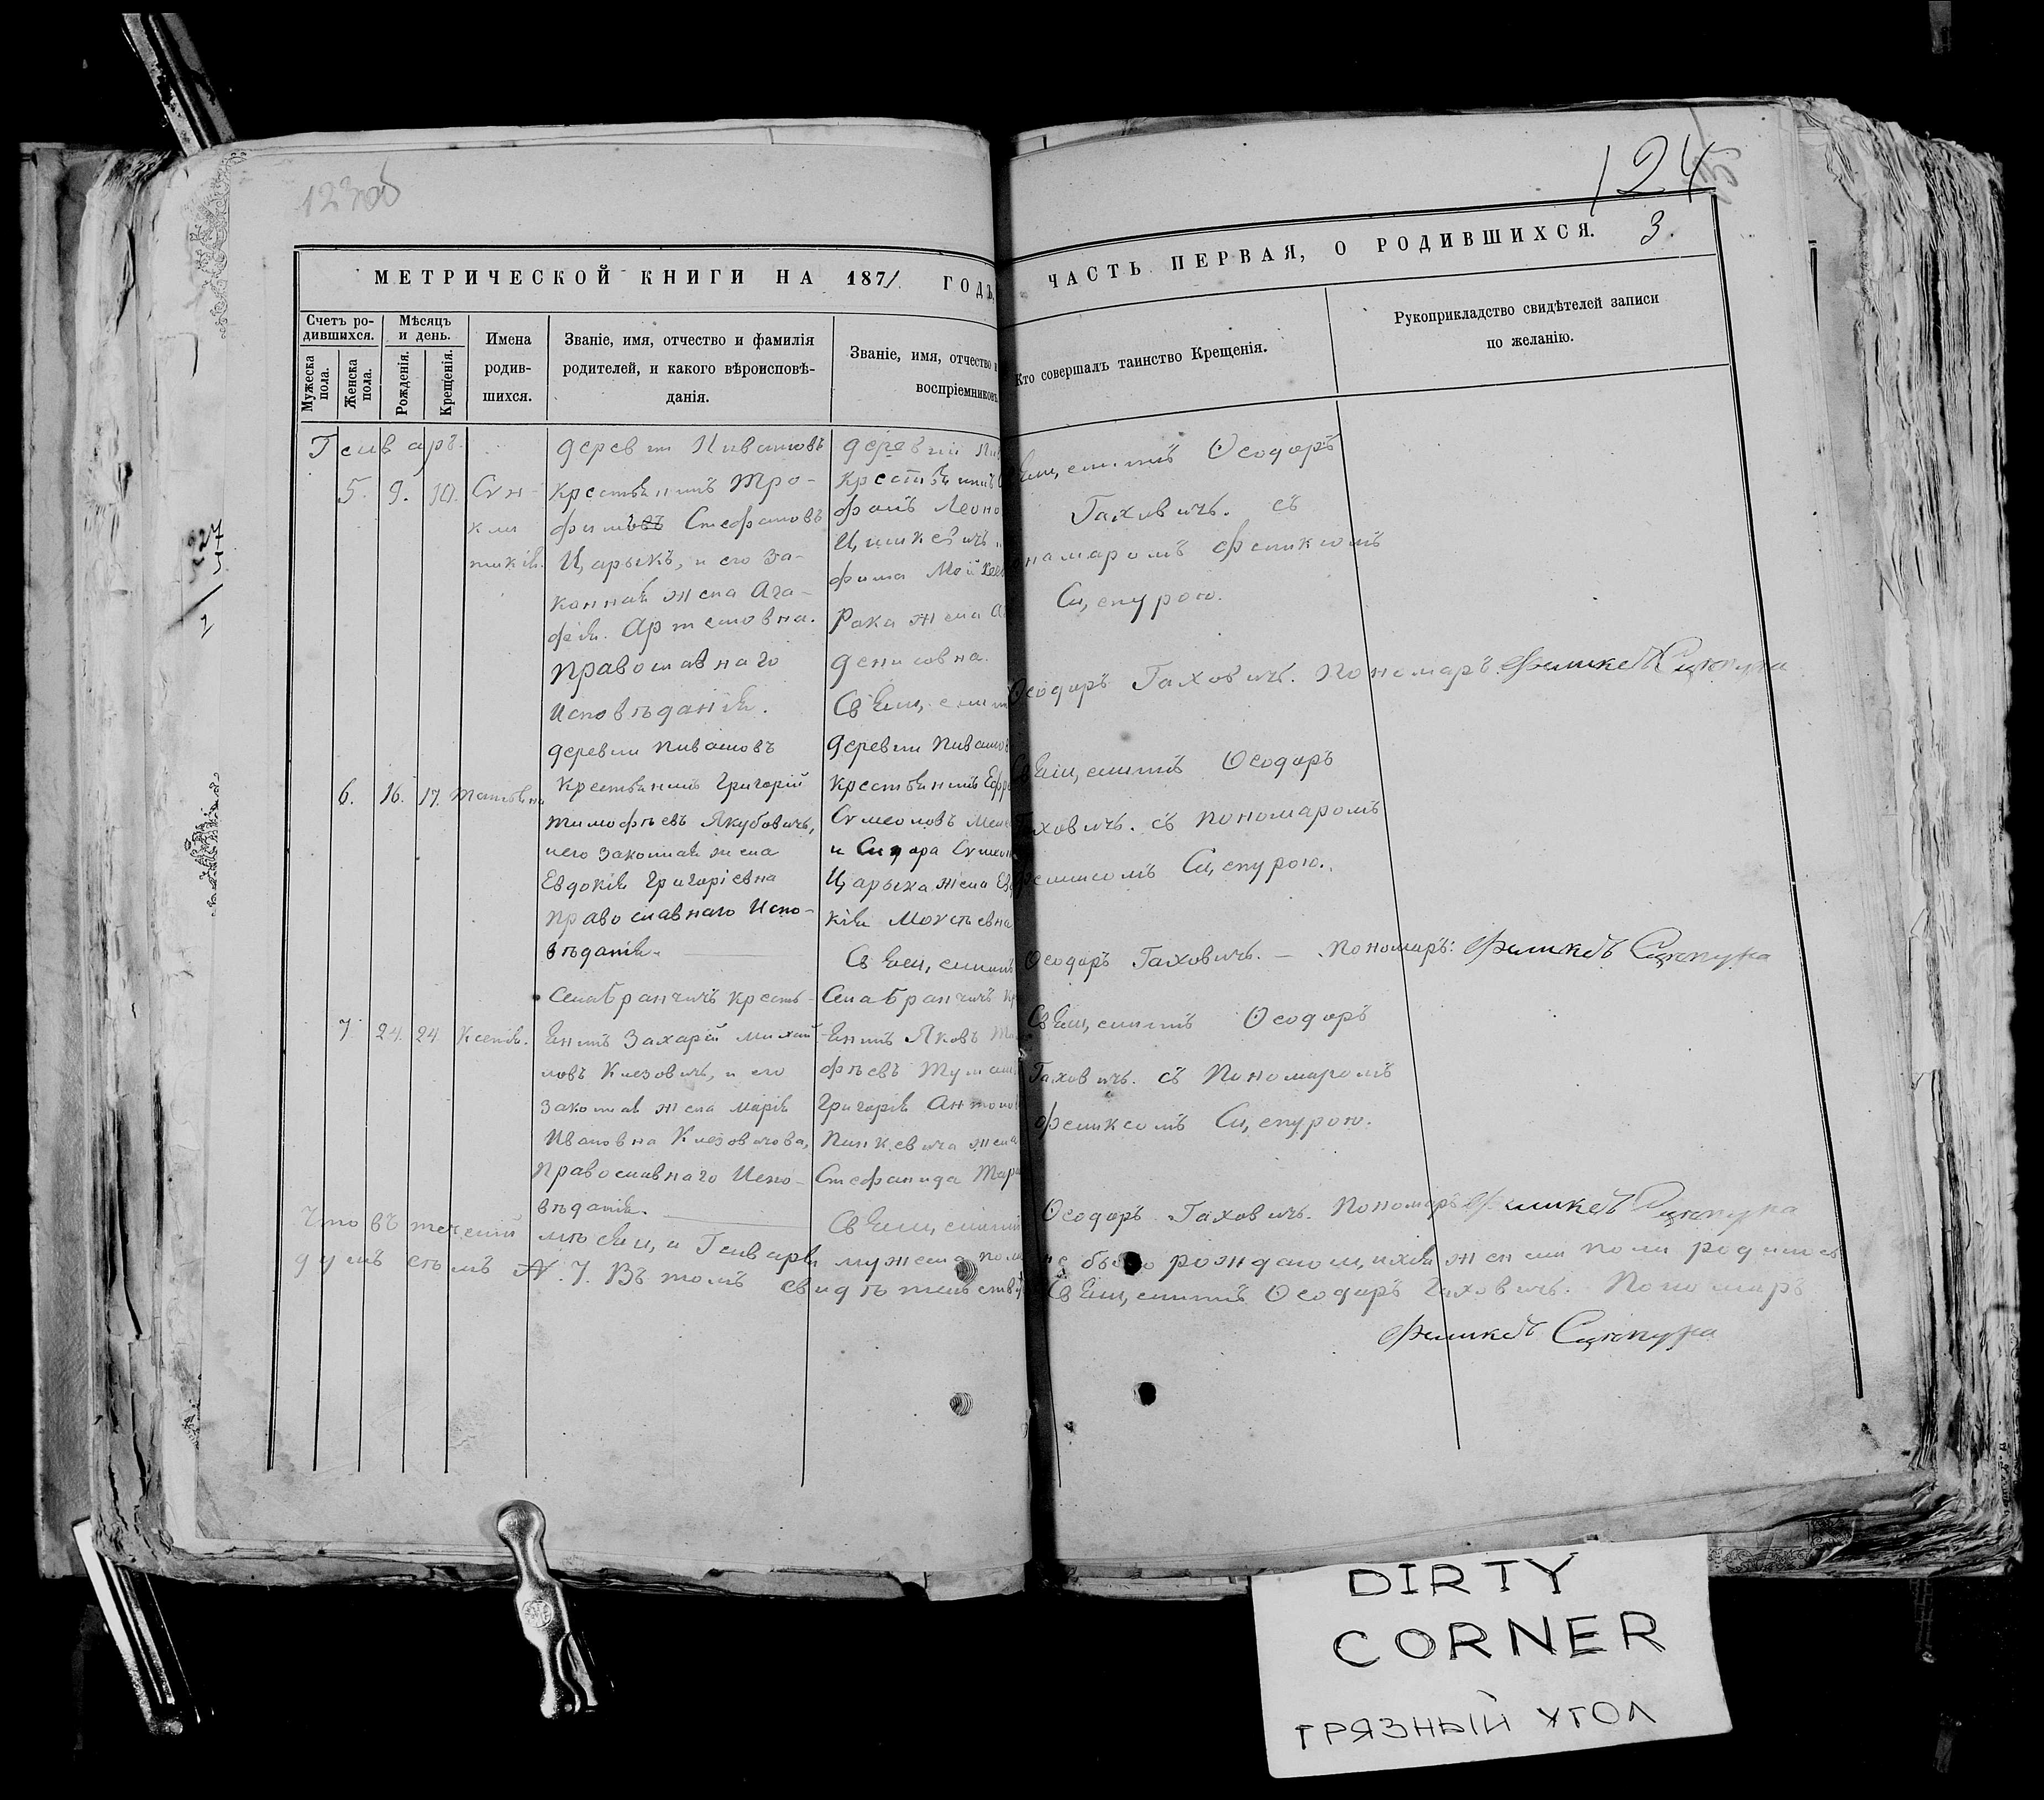 123об
124
МЕТРИЧЕСКОЙ КНИГИ НА 1871 ГОДЪ,
ЧАСТЬ ПЕРВАЯ, О РОДИВШИХСЯ. 3.
Счетъ ро-
дившихся.
Мужеска
пола.
Женска
пола.
Мѣсяцъ
и день.
Рожденія.
Крещенія.
Имена
родив-
шихся.
Званіе, имя, отчество и фамилія
родителей, и какого вѣроисповѣ-
данія.
Званіе, имя, отчество
воспріемниковъ
Кто совершалъ таинство Крещенія.
Рукоприкладство свидѣтелей записи
по желанію.
Генварь.
5. 9. 10.
Сѵн-
кли
тикія.
деревни Пивашовъ
крестьянинъ Тро-
фимовъ Стефановъ
Царыкъ, и его за-
конная жена Ага-
фія Артемовна.
Православнаго
Исповѣданія.
деревни
Крестьянинъ
фанъ Леоно
Цинкевичъ
фима
Рака жена
Денисовна.
Священникъ Ѳеодоръ
Гаховичъ. съ
понамаромъ Феликсомъ
Сцепурою.
Священникъ Ѳеодоръ Гаховичъ. Пономарь Феликсъ Сцепура
6. 16. 17. Татьяна
деревни Пивашовъ
Крестьянинъ Григорій
Тимофѣевъ Якубовичъ,
и его законная жена
Евдокія Григоріевна
Православнаго Испо-
вѣданія.
деревни Пивашов
Крестьянинъ
Сѵмеоновъ
и Сидора Сѵмеон
Царыка жена
кія Моѵсѣевна
Священникъ Ѳеодоръ
Гаховичъ. съ Пономаромъ
Феликсомъ Сцепурою.
Священникъ Ѳеодоръ Гаховичъ. — Пономарь: Феликсъ Сцепура
7. 24. 24 Ксенія.
Села Бранчичъ кресть-
янинъ Захарій Михай
ловъ Клезовичъ, и его
законная жена Марія
Ивановна Клезовичова,
Православнаго Испо-
вѣданія.
Села Бранчичъ кр
янинъ Яковъ
фѣевъ
Григорія Антонов
Пинкевича жена
Стефанида
Священникъ Ѳеодоръ
Гаховичъ. съ Пономаромъ
Феликсомъ Сцепурою.
Священникъ Ѳеодоръ Гаховичъ. Пономарь Феликсъ Сцепура
Что въ теченіи мѣсяца Генваря мужеска пола не было рождающихся женска пола
N. 7. Въ томъ
Священникъ Ѳеодоръ Гаховичъ. Пономарь
Феликсъ Сцепура
DIRTY
CORNER
ГРЯЗНЫЙ УГОЛ